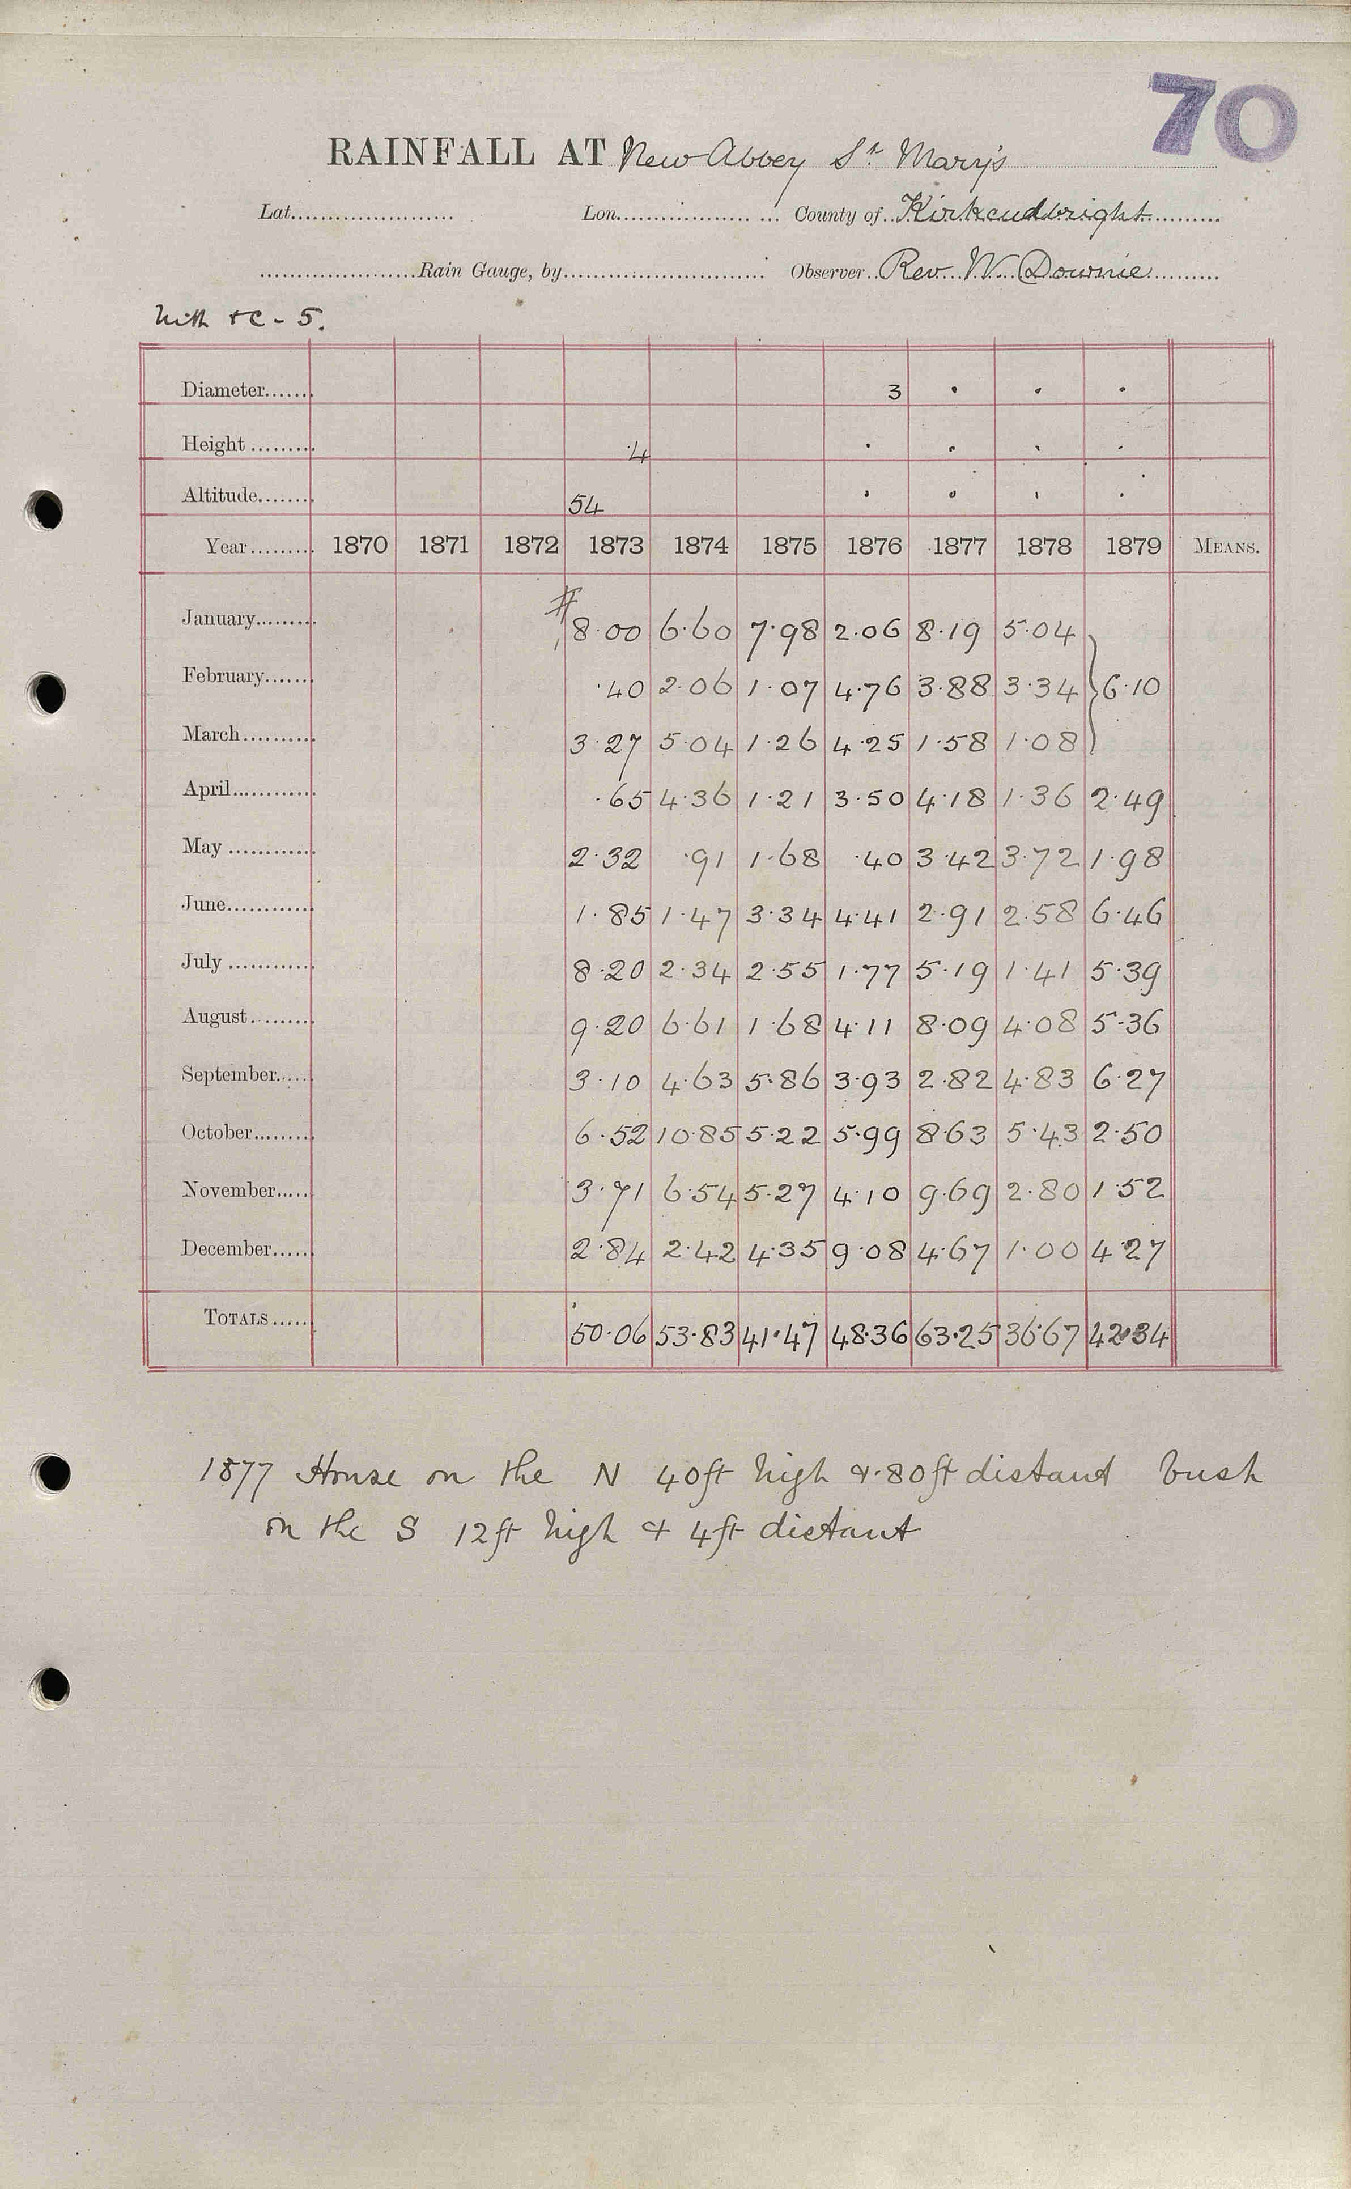 70
RAINFALL AT New Abbey St Mary's
Lat. Lon. County of Kirkcudbright
Rain Gauge, by Observer Rev. W. Downie
Nith &c - 5.
Diameter 3 · · ·
Height ·4 · · · ·
Altitude 54 · · · ·
Year 1870 1871 1872 1873 1874 1875 1876 1877 1878 1879 MEANS.
January # 8·00 6·60 7·98 2·06 8·19 5·04
February ·40 2·06 1·07 4·76 3·88 3·34 } 6·10
March 3·27 5·04 1·26 4·25 1·58 1·08
April ·65 4·36 1·21 3·50 4·18 1·36 2·49
May 2·32 ·91 1·68 ·40 3·42 3·72 1·98
June 1·85 1·47 3·34 4·41 2·91 2·58 6·46
July 8·20 2·34 2·55 1·77 5·19 1·41 5·39
August 9·20 6·61 1·68 4·11 8·09 4·08 5·36
September 3·10 4·63 5·86 3·93 2·82 4·83 6·27
October 6·52 10·85 5·22 5·99 8·63 5·43 2·50
November 3·71 6·54 5·27 4·10 9·69 2·80 1·52
December 2·84 2·42 4·35 9·08 4·67 1·00 4·27
TOTALS 50·06 53·83 41·47 48·36 63·25 36·67 42·34
1877 House on the N 40ft high & 80ft distant bush
on the S 12ft high & 4ft distant